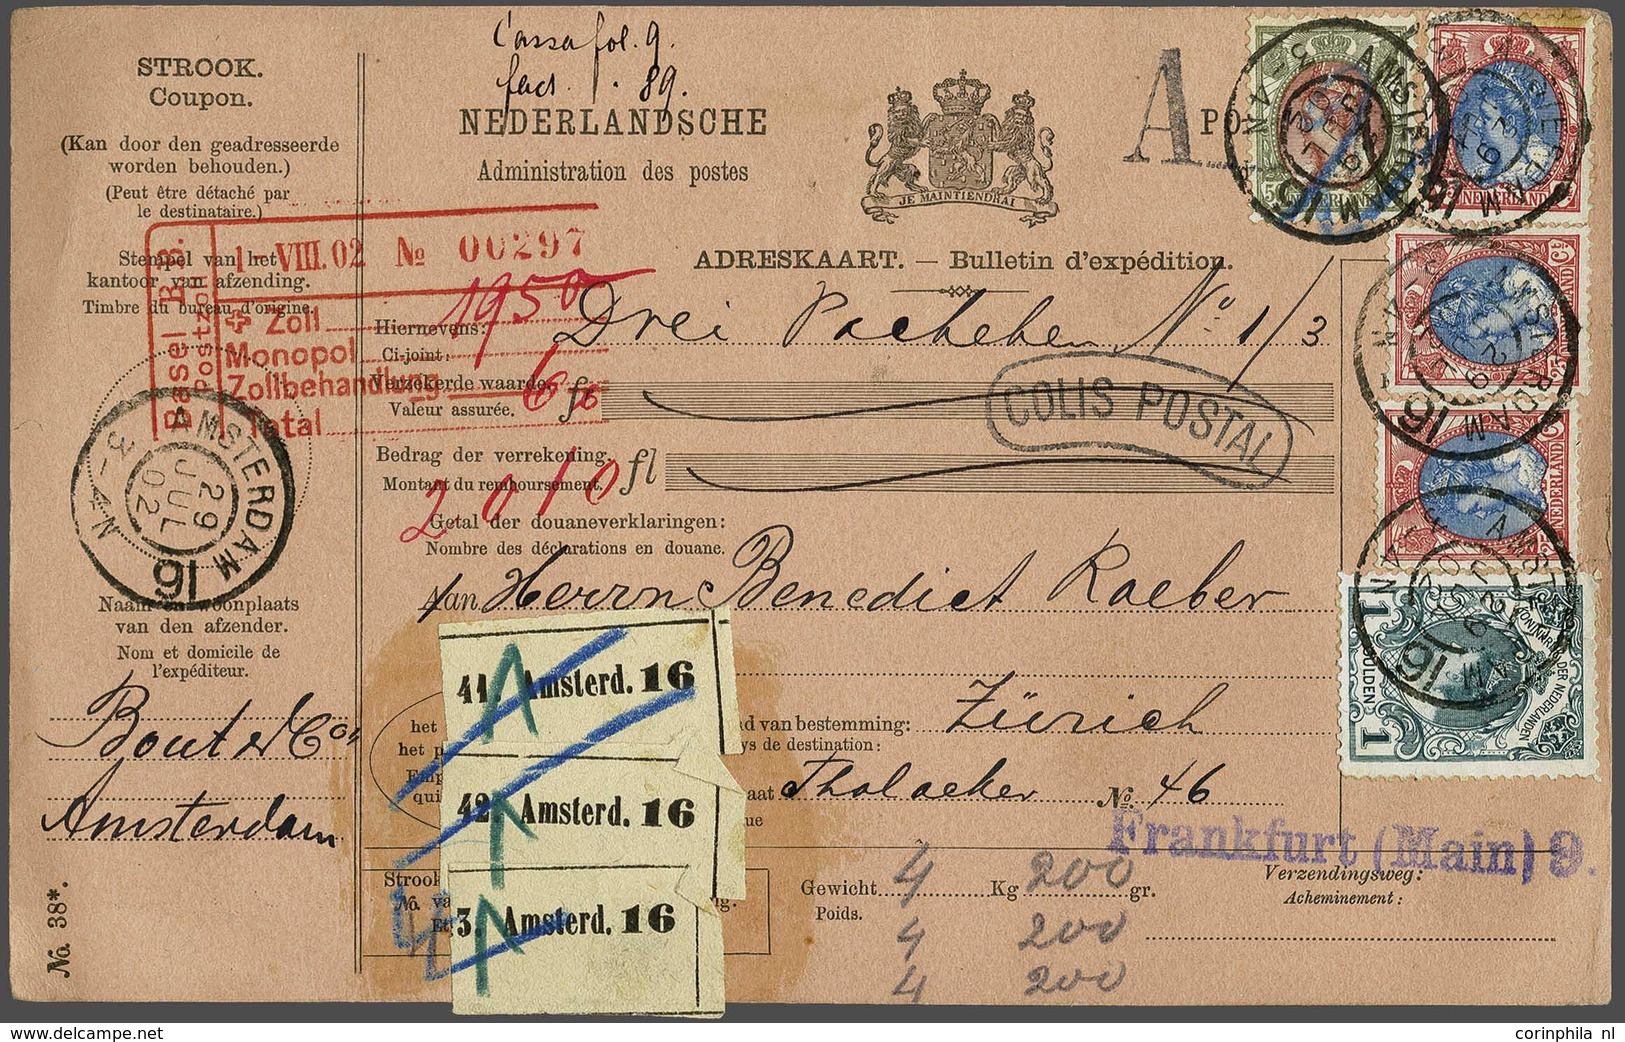 STROOK.
Coupon.
(Kan door den geadresseerde
worden behouden.)
(Peut être détaché par
le destinataire.)
Stempel van het
kantoor van afzending.
Timbre du bureau d'origine.
Basel B.B.
Postzoll
1-VIII.02 No 00297
Zoll
Monopol
Zollbehandlung
Total
1950
60
2010
AMSTERDAM
3-4N
29
JUL
02
16
Naam en woonplaats
van den afzender.
Nom et domicile de
l'expéditeur.
Bout & Co
Amsterdam
No. 38*.
Cassa fol. 9.
fact. 89.
NEDERLANDSCHE
Administration des postes
JE MAINTIENDRAI
A
ADRESKAART. — Bulletin d'expédition.
Hiernevens: Drei Packeten No 1/3
Ci-joint:
Verzekerde waarde. fl
Valeur assurée.
COLIS POSTAL
Bedrag der verrekening. fl
Montant du remboursement.
Getal der douaneverklaringen:
Nombre des déclarations en douane.
Aan Herrn Benedict Raeber
41 A Amsterd. 16
42. A Amsterd. 16
3. A Amsterd. 16
van bestemming: Zürich
de destination:
Thalacker No. 46
Frankfurt (Main) 9.
Strook
No.
Gewicht 4 Kg 200 gr.
Poids.
4 200
4 200
Verzendingsweg:
Acheminement:
AMSTERDAM
16
NEDERLAND
25 NEDERLAND Ct
NEDERLAND
1 GULDEN 1
KONINKRIJK DER NEDERLANDEN
corinphila nl